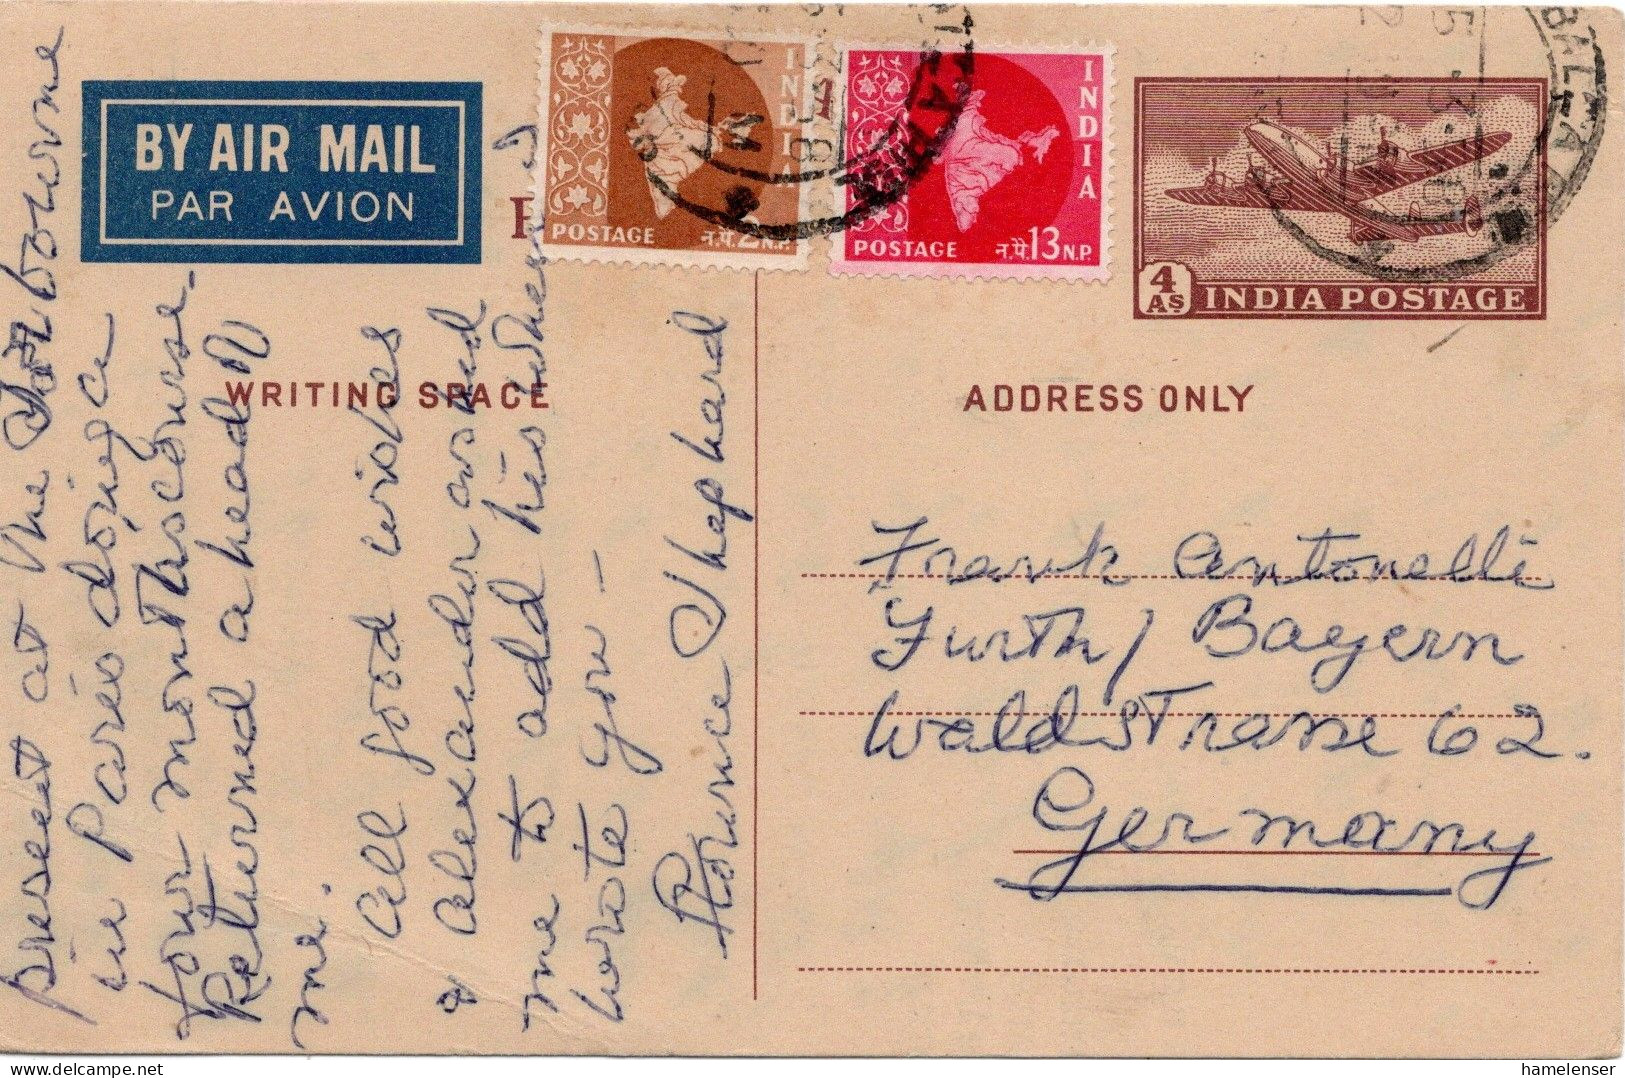 BY AIR MAIL
PAR AVION
INDIA
POSTAGE
न.पै. 2 N.P.
INDIA
POSTAGE
न.पै. 13 N.P.
4 AS
INDIA POSTAGE
WRITING SPACE
ADDRESS ONLY
present at the Sorbourne
in Paris doing a
four month's course.
Returned ahead of
me.
All good wishes
& Alexander asked
me to add his when I
wrote you –
Florence Shephard
Frank Antonelli
Furth / Bayern
Waldstrasse 62.
Germany
www.delcampe.net
hamelenser